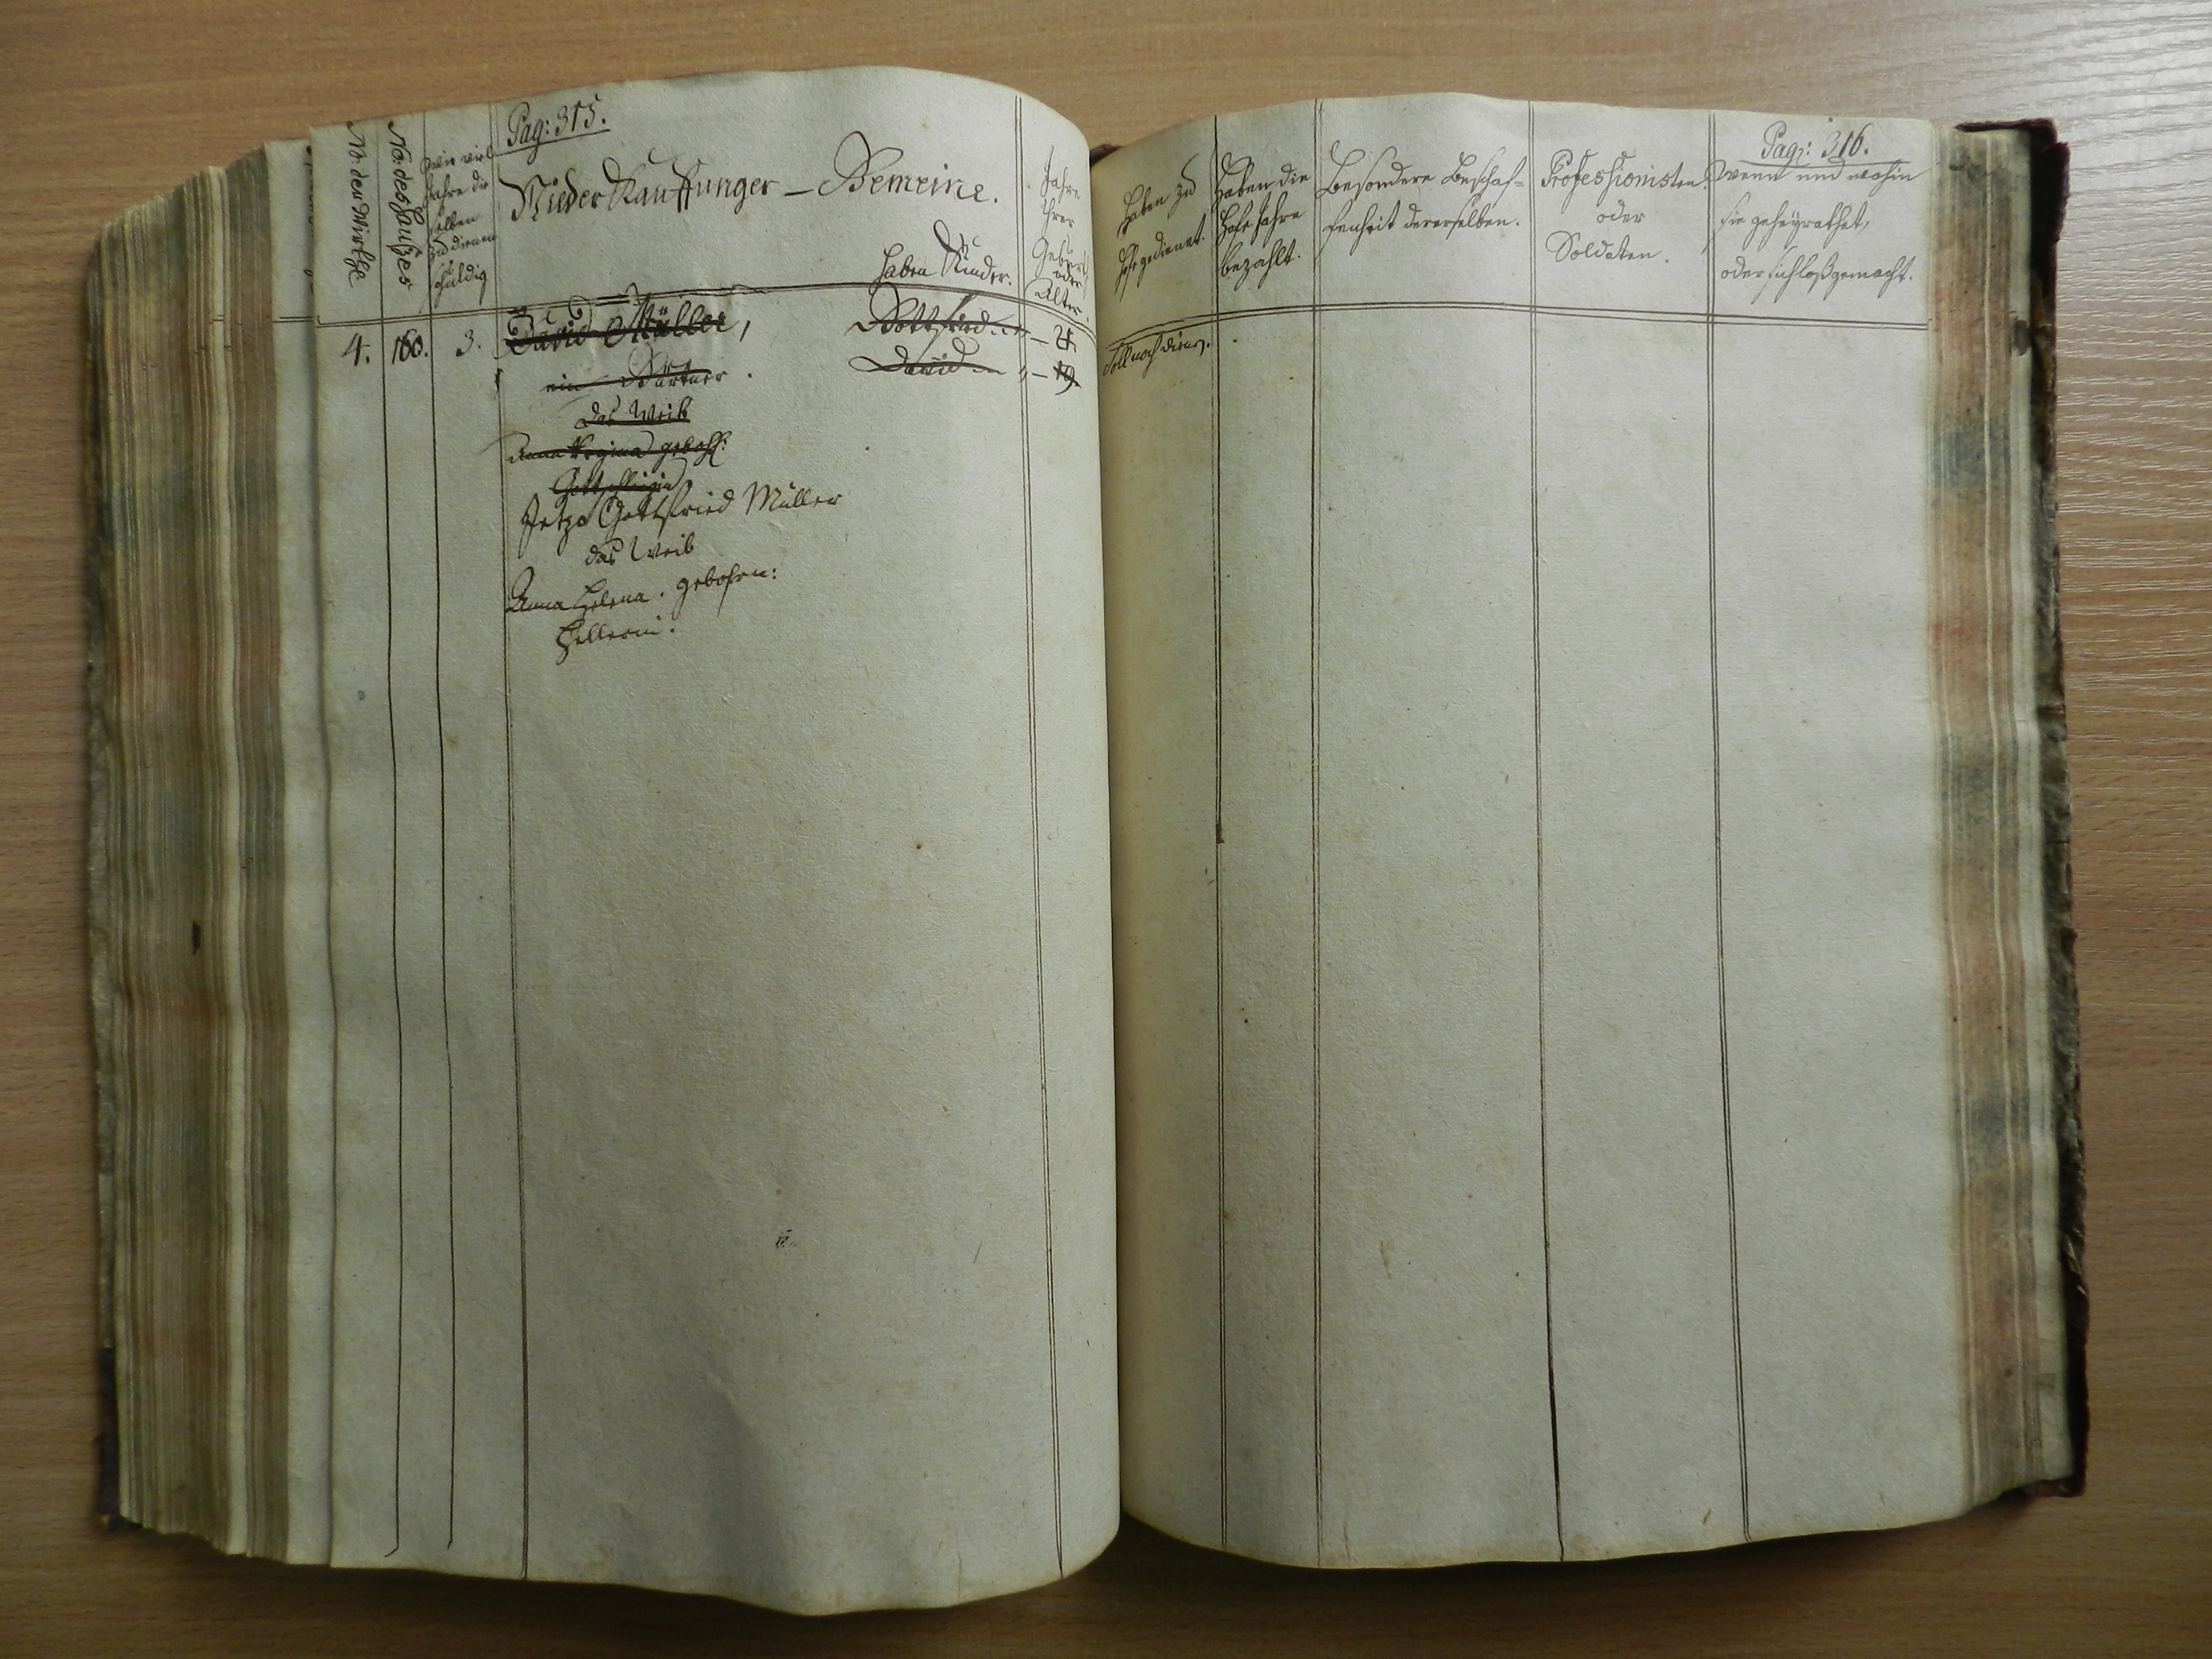 Pag: 315.
No. der Wirthe
No. des Haußes
wie viel
Jahre die
selben
zu dienen
schuldig
Nieder Kauffunger – Gemeine.
haben Kinder.
Jahre
ihrer
Geburth
oder
Alter.
4. 160. 3. David Müller, Gottfried — 21.
ein Gärtner. David " — 19.
das Weib
Anna Regina gebohr:
Gottschlingin
Jetzo Gottfried Müller
das Weib
Anna Helena. gebohrn:
Hellerin.
Pag: 316.
Haben zu
Hofe gedienet.
Haben die
Hofe Jahre
bezahlt.
Besondere Beschaf=
fenheit dererselben.
Professionisten
oder
Soldaten.
wenn und wohin
sie geheyrathet,
oder sich loßgemacht.
Soll noch dienen.